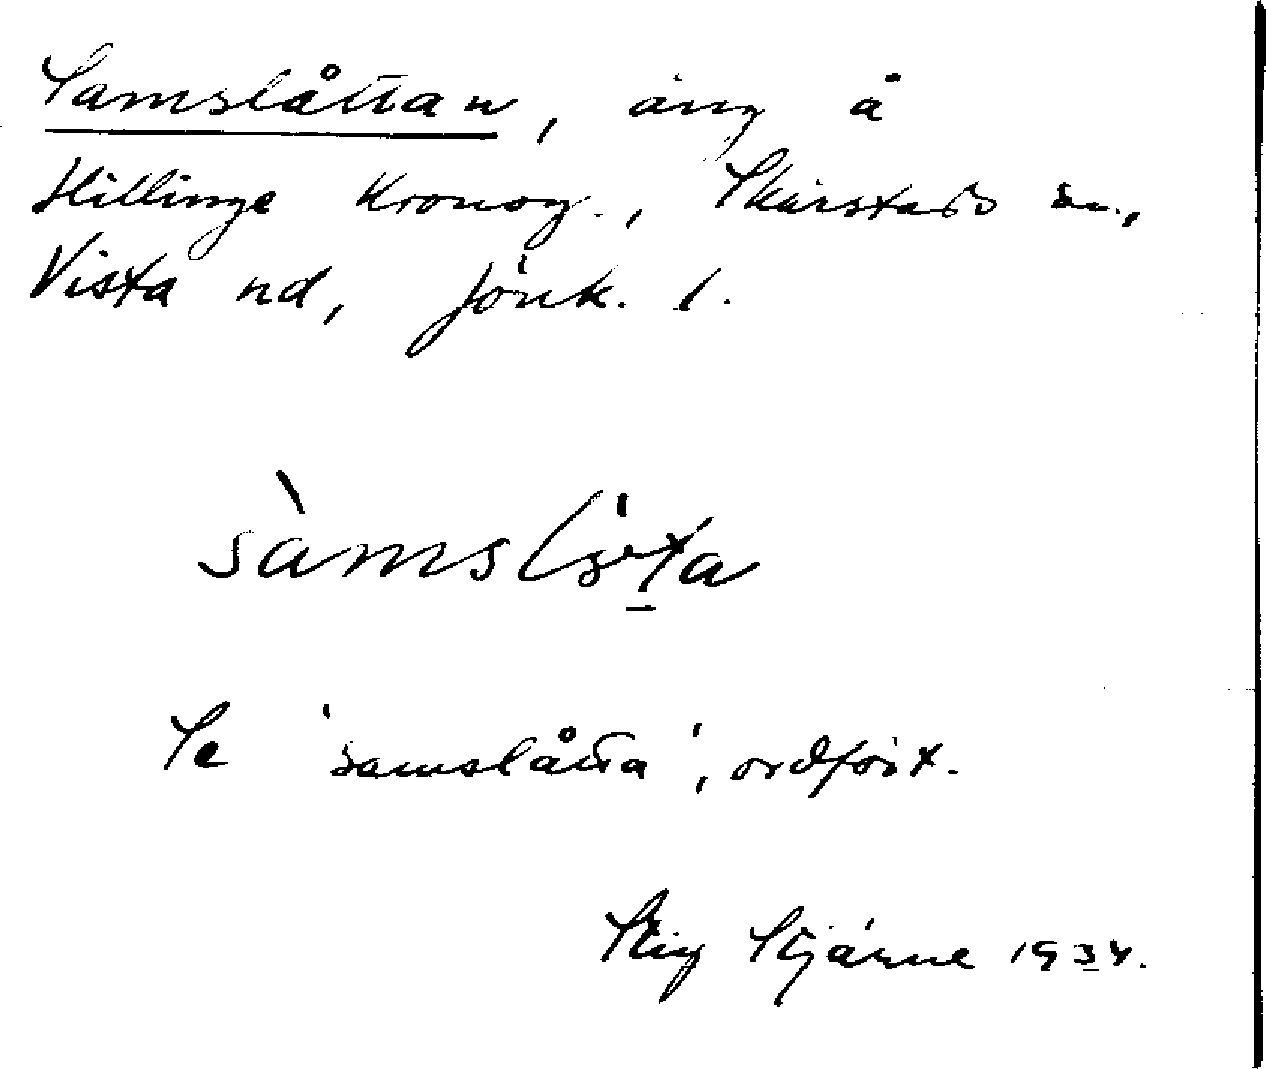 Samslåttan, äng å
Hillinge Kronog., Skärstads sn.,
Vista hd, Jönk. l.
Se 'samslåtta', ordfört.
Stig Stjärne 1934.